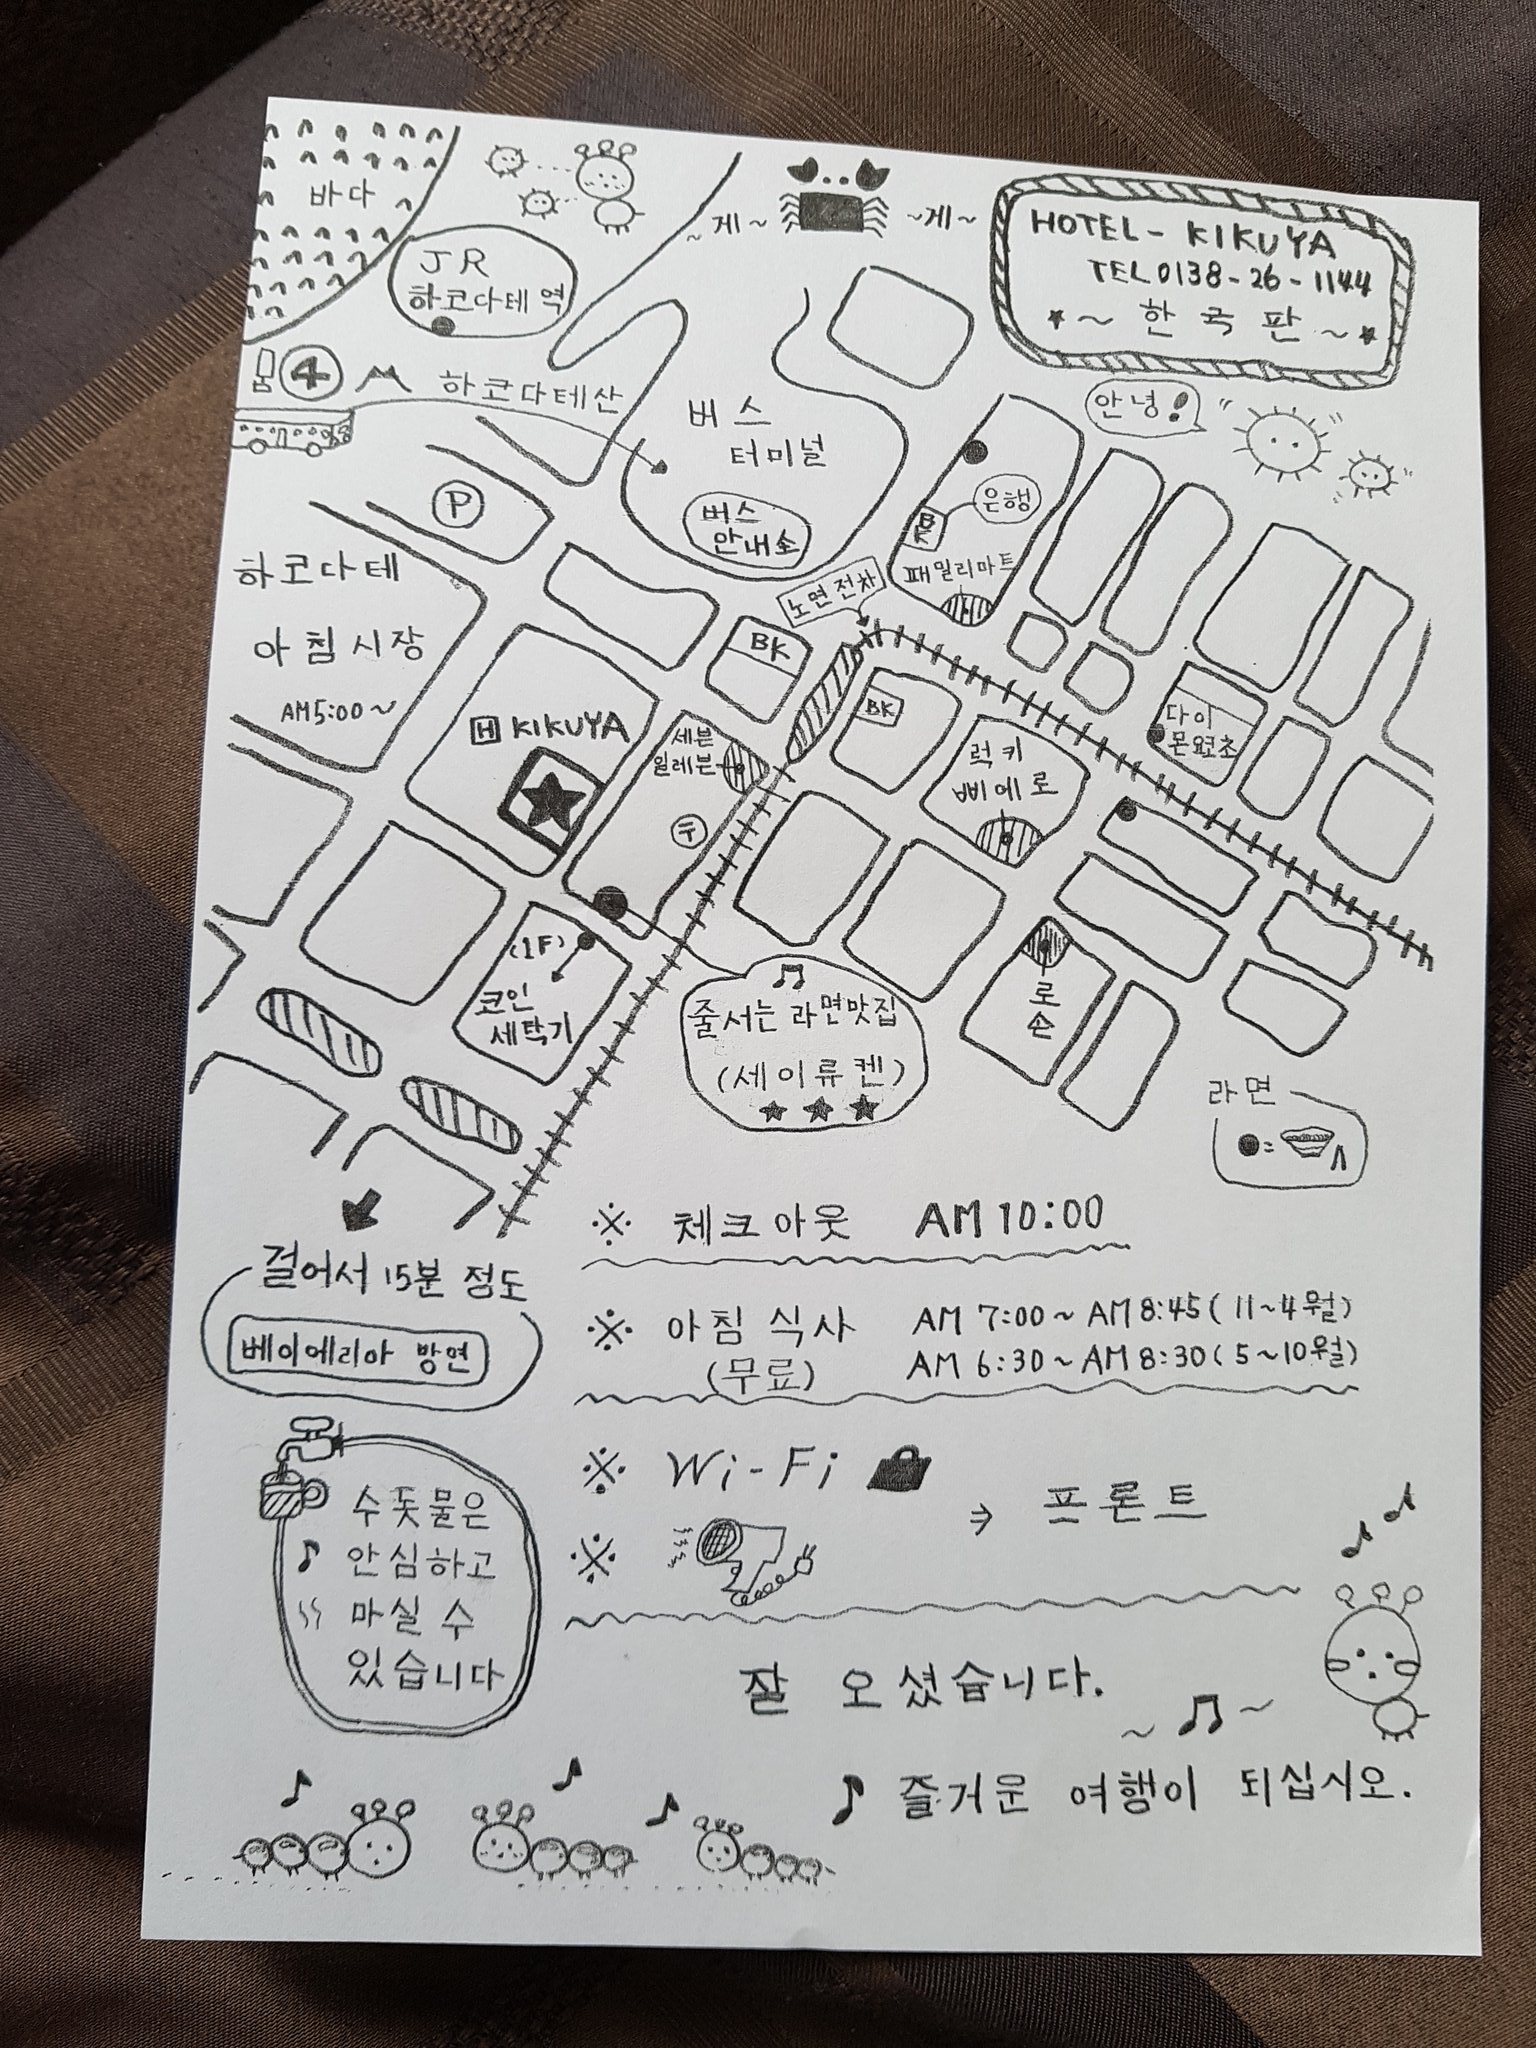 바다
JR
하코다테 역
~게~
~게~
HOTEL - KIKUYA
TEL 0138-26-1144
★~ 한국판 ~★
4
하코다테산
안녕!
버스
터미널
버스
안내소
P
은행
BK
패밀리마트
노면전차
하코다테
아침시장
AM5:00~
BK
H KIKUYA
세븐
일레븐
〒
BK
럭키
삐에로
다이
몬요코초
(1F)
코인
세탁기
줄서는 라면맛집
(세이류켄)
★★★
로손
라면
●=
걸어서 15분 정도
베이에리아 방면
※ 체크아웃 AM 10:00
※ 아침 식사 AM 7:00~AM 8:45(11~4월)
(무료) AM 6:30~AM 8:30(5~10월)
※ Wi-Fi
※
⇒ 프론트
수돗물은
안심하고
마실 수
있습니다
잘 오셨습니다.
~♫~
♪ 즐거운 여행이 되십시오.